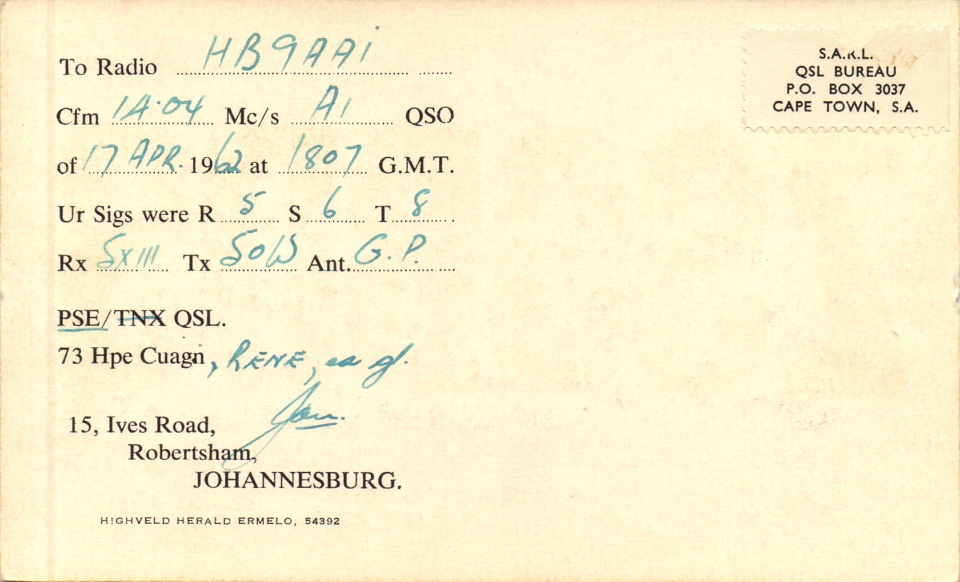 To Radio HB9AAI
Cfm 14.04 Mc/s A1 QSO
of 17 APR. 1962 at 1807 G.M.T.
Ur Sigs were R 5 S 6 T 8
Rx SX111 Tx 50W Ant. G.P.
PSE/TNX QSL.
73 Hpe Cuagn, RENE, es gl.
15, Ives Road,
Robertsham,
JOHANNESBURG.
HIGHVELD HERALD ERMELO, 54392
S.A.R.L.
QSL BUREAU
P.O. BOX 3037
CAPE TOWN, S.A.